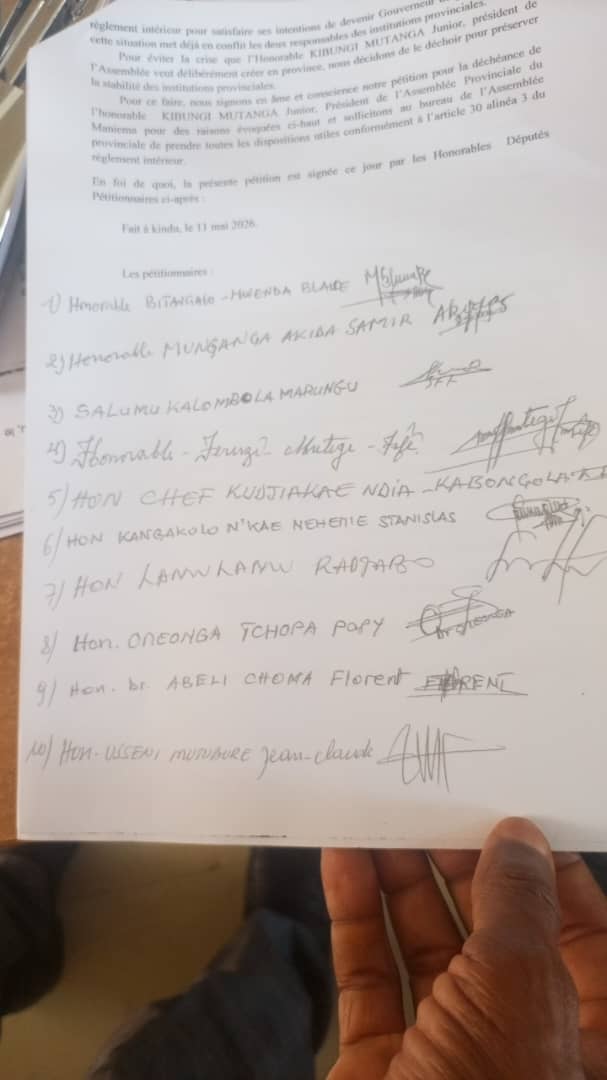 règlement intérieur pour satisfaire ses intentions de devenir Gouverneur
cette situation met déjà en conflit les deux responsables des institutions provinciales.
Pour éviter la crise que l'Honorable KIBUNGI MUTANGA Junior, président de
l'Assemblée veut délibérément créer en province, nous décidons de le déchoir pour préserver
la stabilité des institutions provinciales.
Pour ce faire, nous signons en âme et conscience notre pétition pour la déchéance de
l'honorable KIBUNGI MUTANGA Junior, Président de l'Assemblée Provinciale du
Maniema pour des raisons évoquées ci-haut et sollicitons au bureau de l'Assemblée
provinciale de prendre toutes les dispositions utiles conformément à l'article 30 alinéa 3 du
règlement intérieur.
En foi de quoi, la présente pétition est signée ce jour par les Honorables Députés
Pétitionnaires ci-après :
Fait à kindu, le 11 mai 2026.
Les pétitionnaires :
1) Honorable BITANGALO - MWENDA BLAISE
2) Honorable MUNGANGA AKIBA SAMIR
3) SALUMU KALOMBOLA MARUNGU
4) Honorable - Feruzi - Mutege - Fifi
5) HON CHEF KUDJIAKAE NDIA - KABONGOLA
6) HON KANGAKOLO N'KAE NEHEMIE STANISLAS
7) HON LAMULAMU RADJABO
8) Hon. ONEONGA TCHOPA POPY
9) Hon. Dr. ABELI CHOMA Florent
10) HON. USSENI Jean-claude